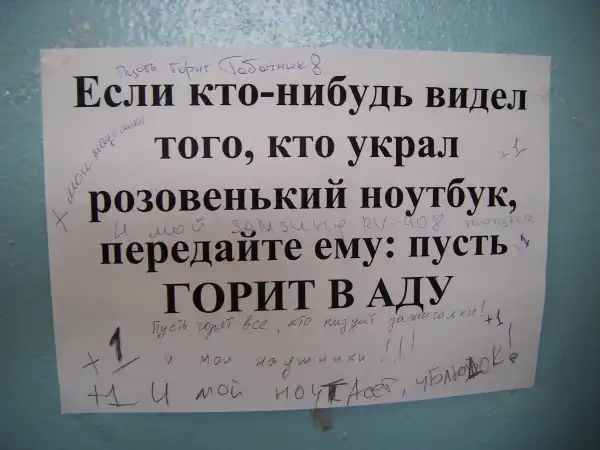 Пусть горит
Если кто-нибудь видел
того, кто украл
+1
+ мои
розовенький ноутбук,
И мой SAMSUNG RV-408
передайте ему: пусть
ГОРИТ В АДУ
Пусть горят все, кто пиздит зажигалки! +1
+1 и мои наушники!!!
+1 И мой НОУТ Acer, УБЛЮДОК!